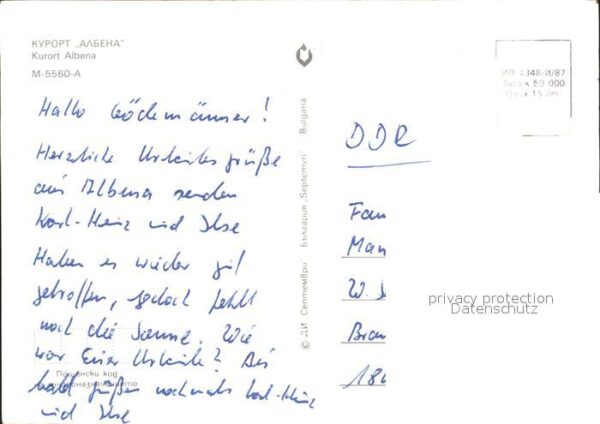 КУРОРТ „АЛБЕНА"
Kurort Albena
М-5560-А
Hallo Göckemänner!
Herzliche Urlaubsgrüße
aus Albena senden
Karl-Heinz und Ilse
Haben es wieder gut
getroffen, jedoch fehlt
noch die Sonne. Wie
war Euer Urlaub? Bis
bald grüßen nochmals Karl-Heinz
und Ilse
Пощенски код
местоназначението
© ДИ „Септември" България „Septemvri" Bulgaria
ИП. 4348-И/87
Тираж 50 000
Цена 15 ст.
DDR
Fam
Man
W. J
Bran
180
privacy protection
Datenschutz